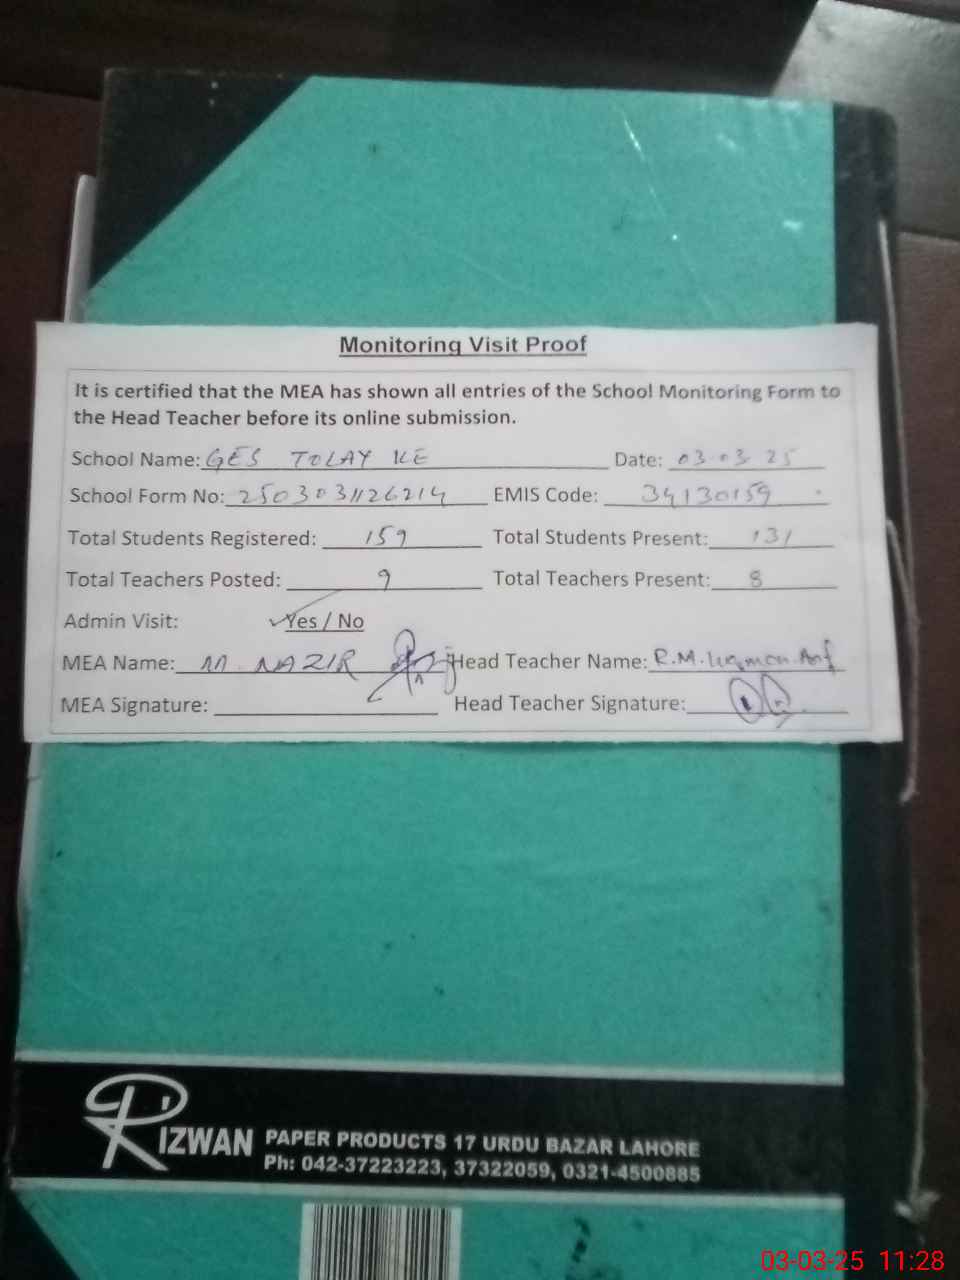 Monitoring Visit Proof
It is certified that the MEA has shown all entries of the School Monitoring Form to
the Head Teacher before its online submission.
School Name: GES TOLAY KE Date: 03.03.25
School Form No: 2503031126214 EMIS Code: 34130159
Total Students Registered: 159 Total Students Present: 131
Total Teachers Posted: 9 Total Teachers Present: 8
Admin Visit: Yes / No
MEA Name: M. NAZIR Head Teacher Name: R.M.
MEA Signature: Head Teacher Signature:
RIZWAN PAPER PRODUCTS 17 URDU BAZAR LAHORE
Ph: 042-37223223, 37322059, 0321-4500885
03-03-25 11:28